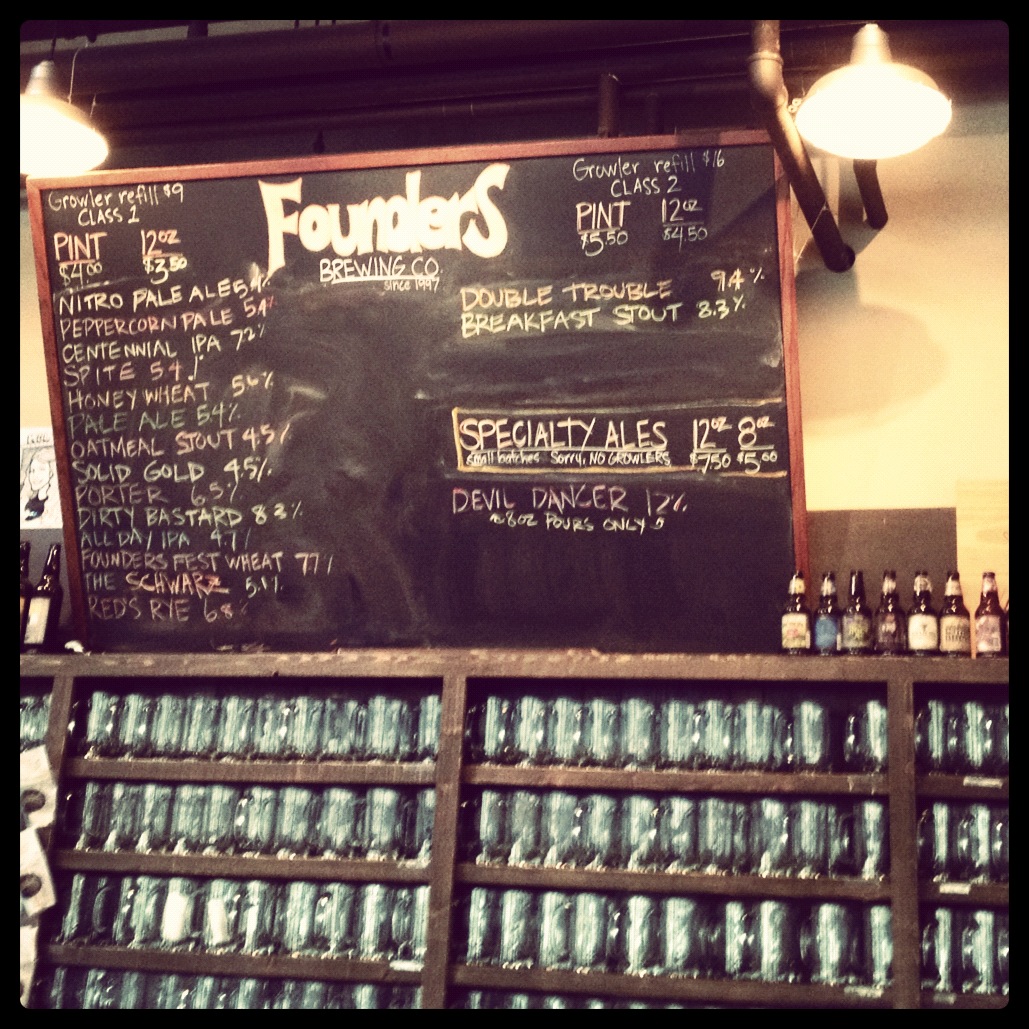 Growler refill $9
CLASS 1
PINT 12oz
$4.00 $3.50
NITRO PALE ALE 5.4%
PEPPERCORN PALE 5.4%
CENTENNIAL IPA 7.2%
SPITE 5.4
HONEY WHEAT 5.6%
PALE ALE 5.4%
OATMEAL STOUT 4.5%
SOLID GOLD 4.5%
PORTER 6.5%
DIRTY BASTARD 8.3%
ALL DAY IPA 4.7%
FOUNDERS FEST WHEAT 7.7%
THE SCHWARZ 5.1%
RED'S RYE 6.8%
Founders
BREWING CO.
since 1997
Growler refill $16
CLASS 2
PINT 12oz
$5.50 $4.50
DOUBLE TROUBLE 9.4%
BREAKFAST STOUT 8.3%
SPECIALTY ALES 12oz 8oz
small batches Sorry, NO GROWLERS $7.50 $5.00
DEVIL DANCER 12%
~8oz POURS ONLY